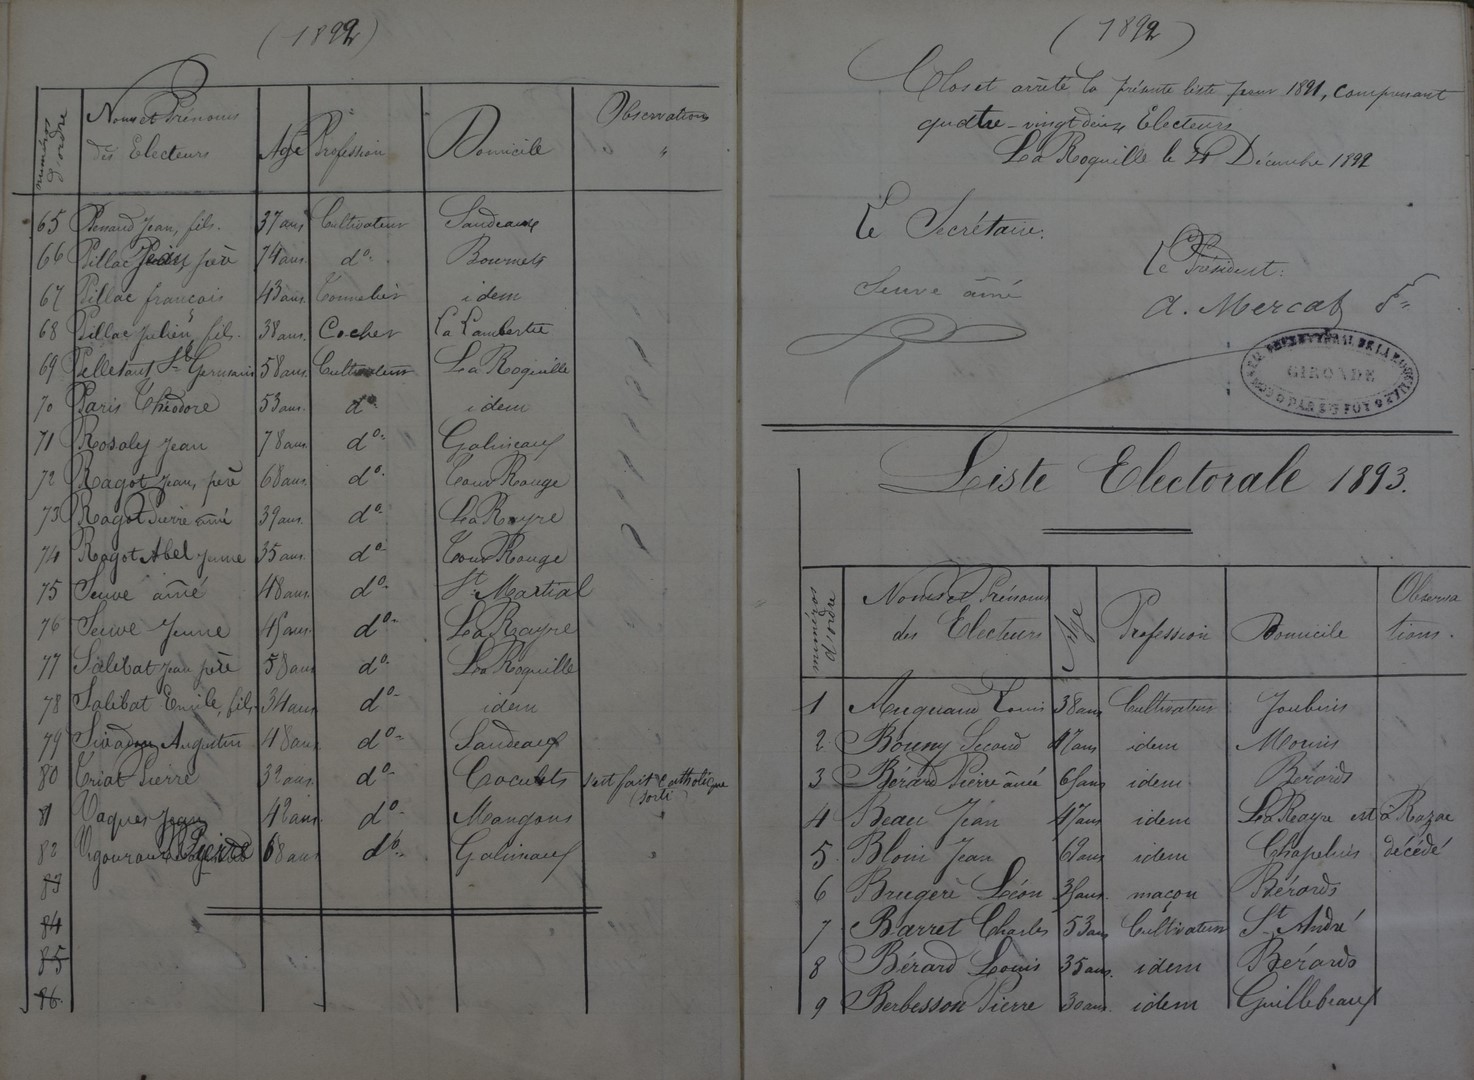 (1892)
numéros d'ordre
Noms et Prénoms
des Electeurs
Age
Profession
Domicile
Observations
65 Renaud Jean, fils. 37 ans Cultivateur Sandeaux
66 Pillac Jean père 74 ans. do
67 Pillac françois 43 ans. Tonnelier idem
68 Pillac Julien, fils. 38 ans. Cocher La Lambertie
69 Pelletant St Germain 58 ans. Cultivateur La Roquille
70 Paris Théodore 53 ans. do idem
71 Rosaly Jean 78 ans. do- Galineaux
72 Ragot Jean, père 68 ans. do- Tour Rouge
73 Ragot Pierre aîné 39 ans. do- La Rayre
74 Ragot Abel Jeune 35 ans. do- Tour Rouge
75 Seuve aîné 48 ans. do- St Martial
76 Seuve Jeune 45 ans. do- La Rayre
77 Salebat Jean père 58 ans do- La Roquille
78 Salebat Emile, fils. 34 ans do- idem
79 Augustin 48 ans do- Sandeaux
80 Triat Pierre 32 ans. do- s'est fait catholique
(sorti)
81 Vaques Jean 42 ans. do- Mangons
82 Pierre 68 ans do- Galineaux
83
84
85
86
(1892)
Clos et arrêté la présente liste pour 1891, comprenant
quatre-vingt deux Electeurs
La Roquille le Décembre 1892
Le Secrétaire.
Le Président:
Seuve aîné
A. Mercat
GIRONDE
Liste Electorale 1893.
numéros d'ordre
Noms et Prénoms
des Electeurs
Age
Profession
Domicile
Observa
tions.
1 Louis 38 ans Cultivateur
2 Bouny Second 47 ans idem Monis
3 Bérard Pierre ainé idem Bérards
4 Beau Jean 47 ans idem La Rayre est à Razac
5 Jean 69 ans idem Chapelins décédé
6 Brugère Léon maçon Bérards
7 Barret Charles 53 ans Cultivateur St André
8 Bérard Louis 35 ans. idem Bérards
9 Berbesson Pierre 30 ans. idem Guillebeaux